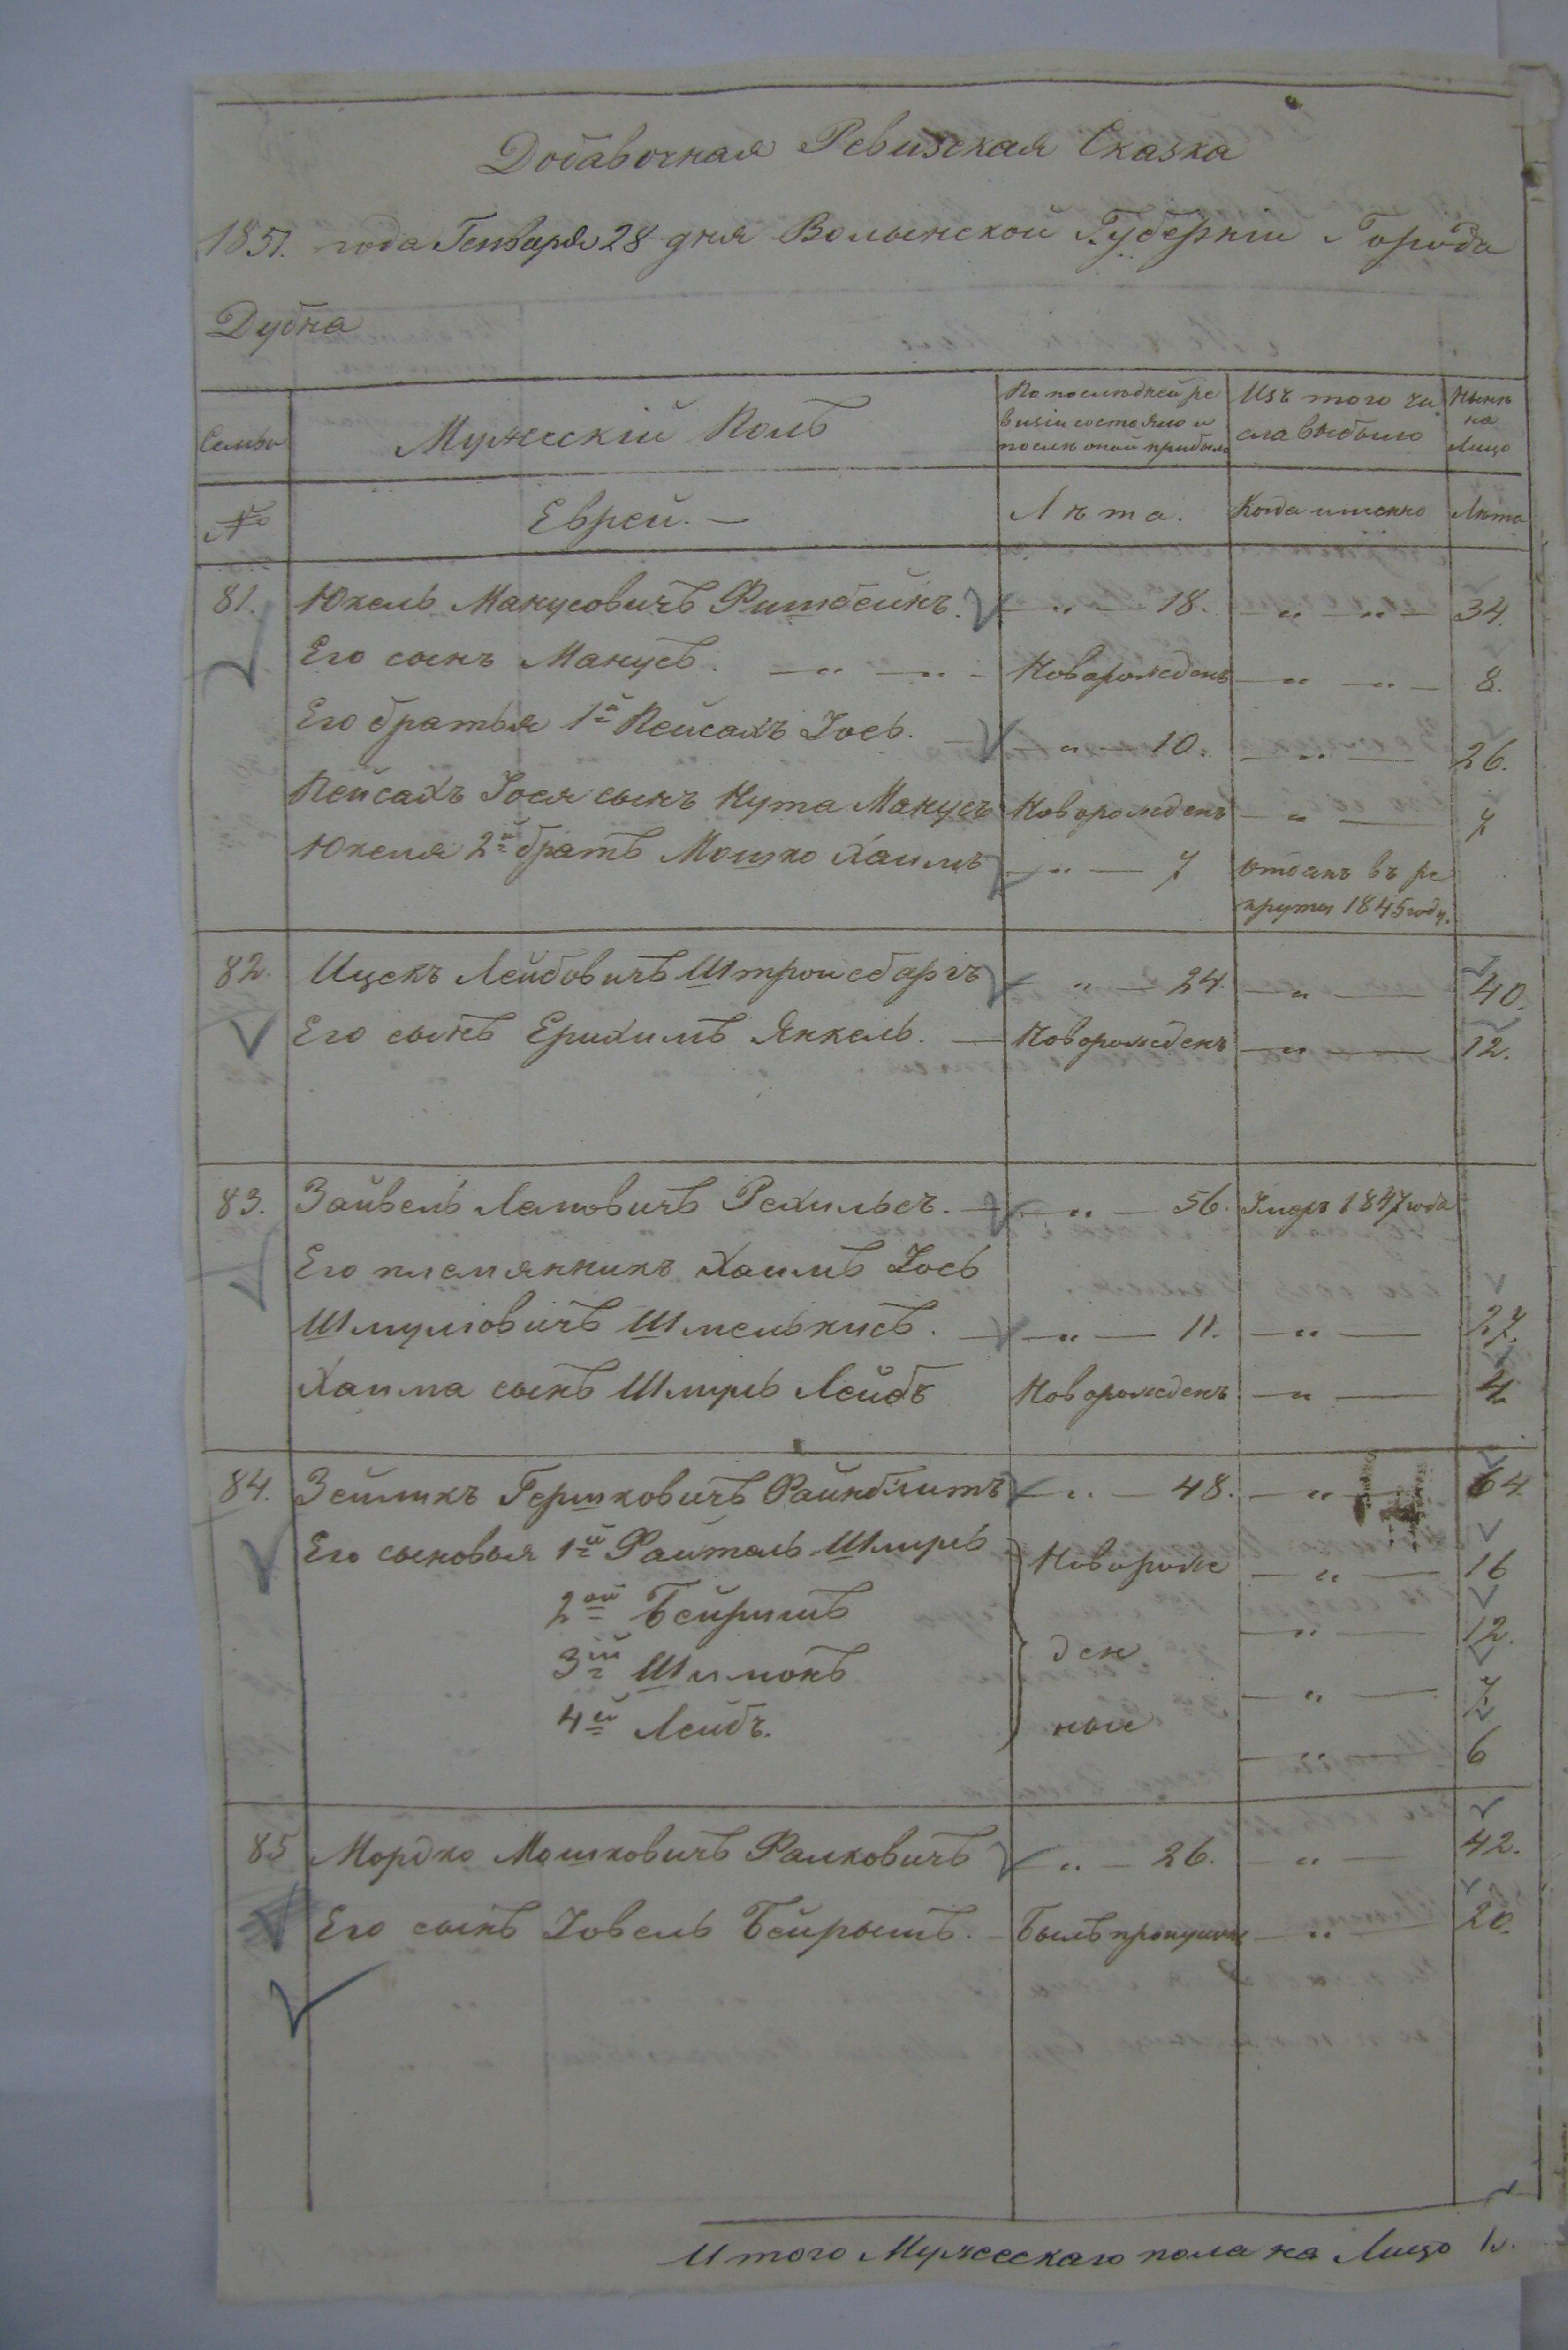 Добавочная Ревизская Сказка
1851. года Генваря 28 дня Волынской Губерніи Города
Дубна
Семьи | Мужескій Полъ | По последней ре | Изъ того чи | Нынѣ
визіи состояло и | сла выбыло | на
послѣ оной прибыло | Лицо
№ | Евреи. — | Лѣта. | Когда именно | Лѣта
81. Юкель Манусовичъ Ритбейнъ. — „ — 18. — „ — „ — 34.
Его сынъ Манусъ. — „ — „ — Новорожденъ — „ — „ — 8.
Его братья 1й Пейсахъ Іось. — „ — 10. — „ — 26.
Пейсахъ Іося сынъ Нута Манусъ Новорожденъ — „ — 7
Юкеля 2й братъ Мошко Хаимъ — „ — 7 отданъ въ ре
круты 1845 году.
82. Ицекъ Лейбовичъ Штройсбергъ — „ — 24. — „ — 40.
Его сынъ Ерихимъ Янкель. — Новорожденъ — „ — 12.
83. Зайвель Лемовичъ Рехильсъ. — „ — 56. Умеръ 1847 года
Его племянникъ Хаимъ Іось
Шмулювичъ Шмелькисъ. — „ — 11. — „ — 27.
Хаима сынъ Шмуль Лейбъ Новорожденъ. — „ — 4.
84. Зейликъ Гершковичъ Файнблитъ — „ — 48. — „ — 64.
Его сыновья 1й Файтель Шмуль Новорож — „ — 16
2ой Бейришъ — „ — 12.
3ій Шимонъ ден — „ — 7.
4й Лейбъ. ные — „ — 6
85 Мордко Мошковичъ Фалковичъ — „ — 26. — „ — 42.
Его сынъ Іовель Бейрышъ. — Былъ пропущенъ — „ — 20.
Итого Мужескаго пола на Лицо